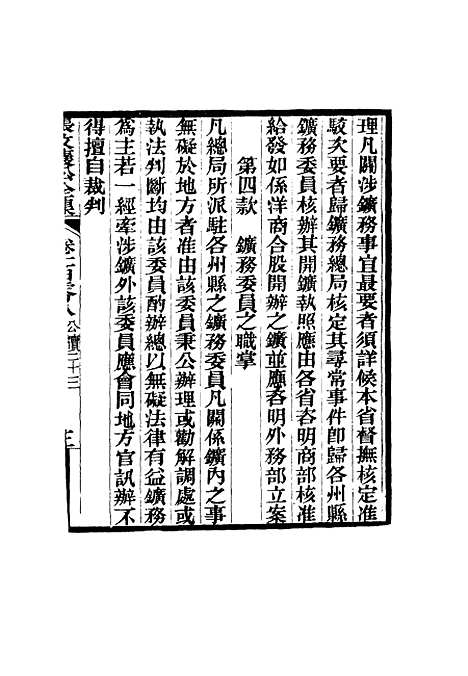 理凡關涉鑛務事宜最要者須詳候本省督撫核定准
駁次要者歸鑛務總局核定其尋常事件卽歸各州縣
鑛務委員核辦其開鑛執照應由各省咨明商部核准
給發如係洋商合股開辦之鑛並應咨明外務部立案
第四款　鑛務委員之職掌
凡總局所派駐各州縣之鑛務委員凡關係鑛內之事
無礙於地方者准由該委員秉公辦理或勸解調處或
執法判斷均由該委員酌辦總以無礙法律有益鑛務
爲主若一經牽涉鑛外該委員應會同地方官訊辦不
得擅自裁判
公牘二十三